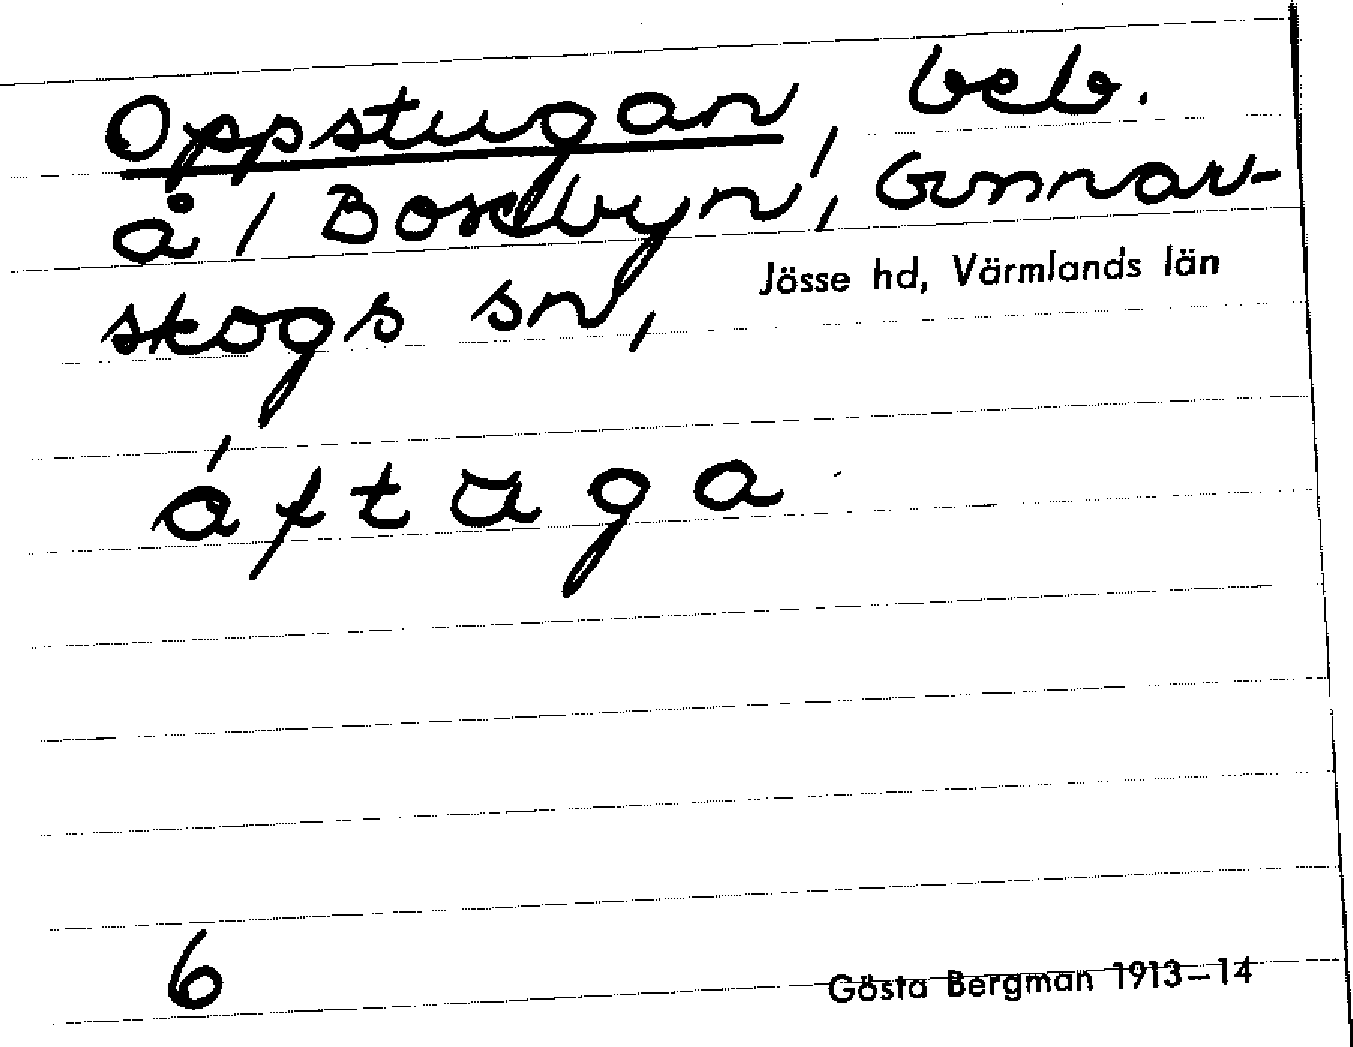 Oppstugan, beb.
å 1 Boxbyn, Gunnar-
skogs sn, Jösse hd, Värmlands län
áftuga
6
Gösta Bergman 1913–14